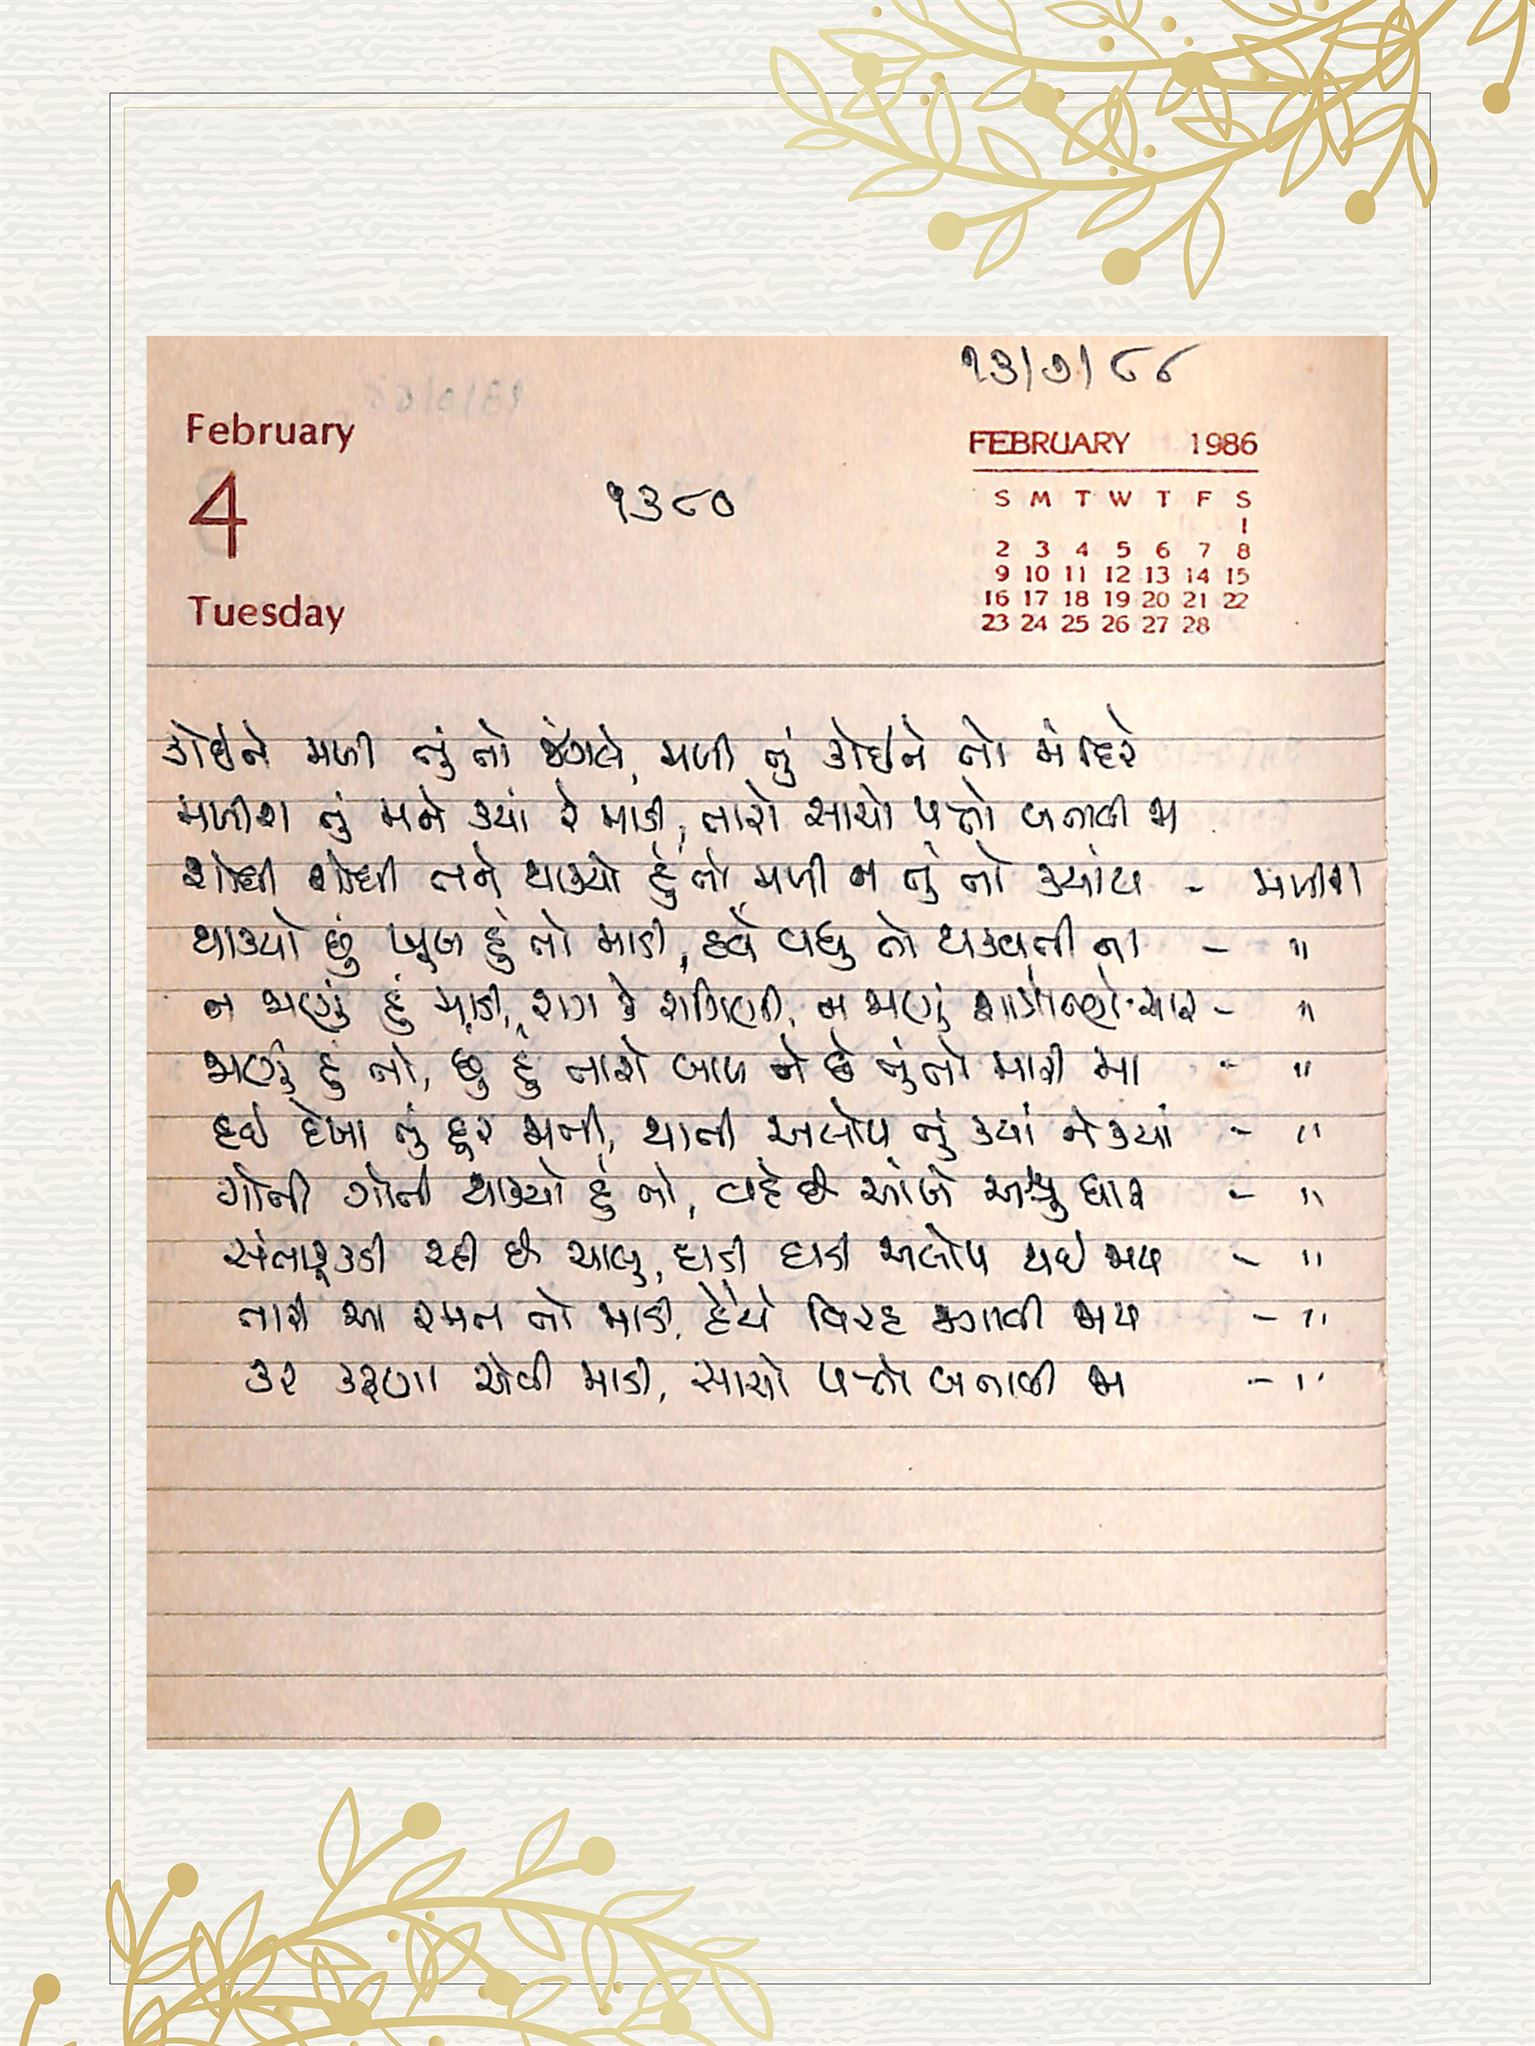 ૧૩/૭/૮૮
February
4
Tuesday
૧૩૮૦
FEBRUARY 1986
S M T W T F S
1
2 3 4 5 6 7 8
9 10 11 12 13 14 15
16 17 18 19 20 21 22
23 24 25 26 27 28
કોઈને મળી તું તો જંગલે, મળી તું કોઈને તો મંદિરે
મળીશ તું મને ક્યાં રે માડી, તારો સાચો પત્તો બતાવી જા
શોધી શોધી તને થાક્યો હું તો, મળી ન તું તો ક્યાંય - મળીશ
થાક્યો છું ખૂબ હું તો માડી, હવે વધુ તો થકવતી ના - "
ન જાણું હું માડી, રાગ કે રાગિણી, ન જાણું - "
જાણું હું તો, છું હું તારો બાળ ને છે તું તો મારી મા - "
દઈ દેખા તું દૂર ભાગતી, થાતી અલોપ તું ક્યાં ને ક્યાં - "
ગોતી ગોતી થાક્યો હું તો, વહે છે આંખે અશ્રુ ધાર - "
સંતાકૂકડી રહી છે ચાલુ, ઘડી ઘડી અલોપ થઈ જાય - "
તારી આ રમત તો માડી, હૈયે વિરહ જગાવી જાય - "
કર કરૂણા એવી માડી, સાચો પત્તો બતાવી જા - "